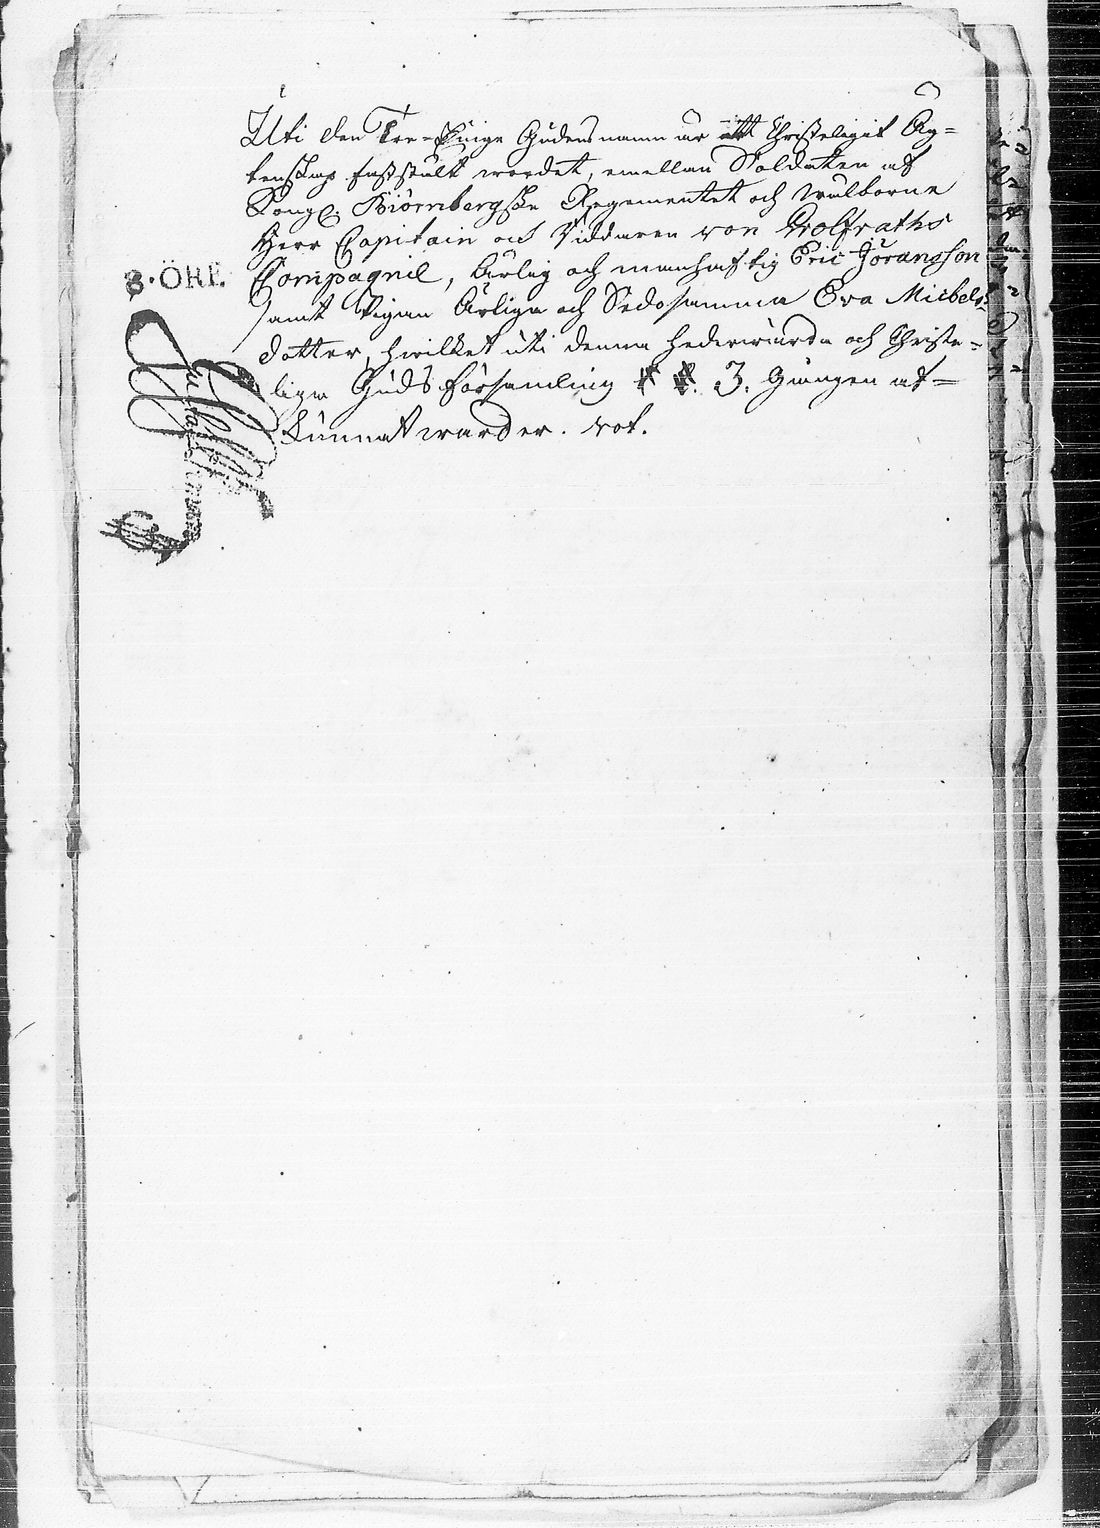 Uti den Tre-Eniga Gudens namn är ett Christeligit Äg=
tenskap fastställt wordet, emellan Soldaten af
Kongl. Biörnebergske Regementet och wälborne
Herr Capitain och Riddaren von Wolfraths
Compagnie, Ärlig och manhaftig Eric Göransson
samt Pigan Ärliga och Sedosamma Eva Michels=
dotter, hwilket uti denna hederwärda och Christe=
liga Guds församling 3. Gången af=
kunnat warder. vot.
8. ÖRE.